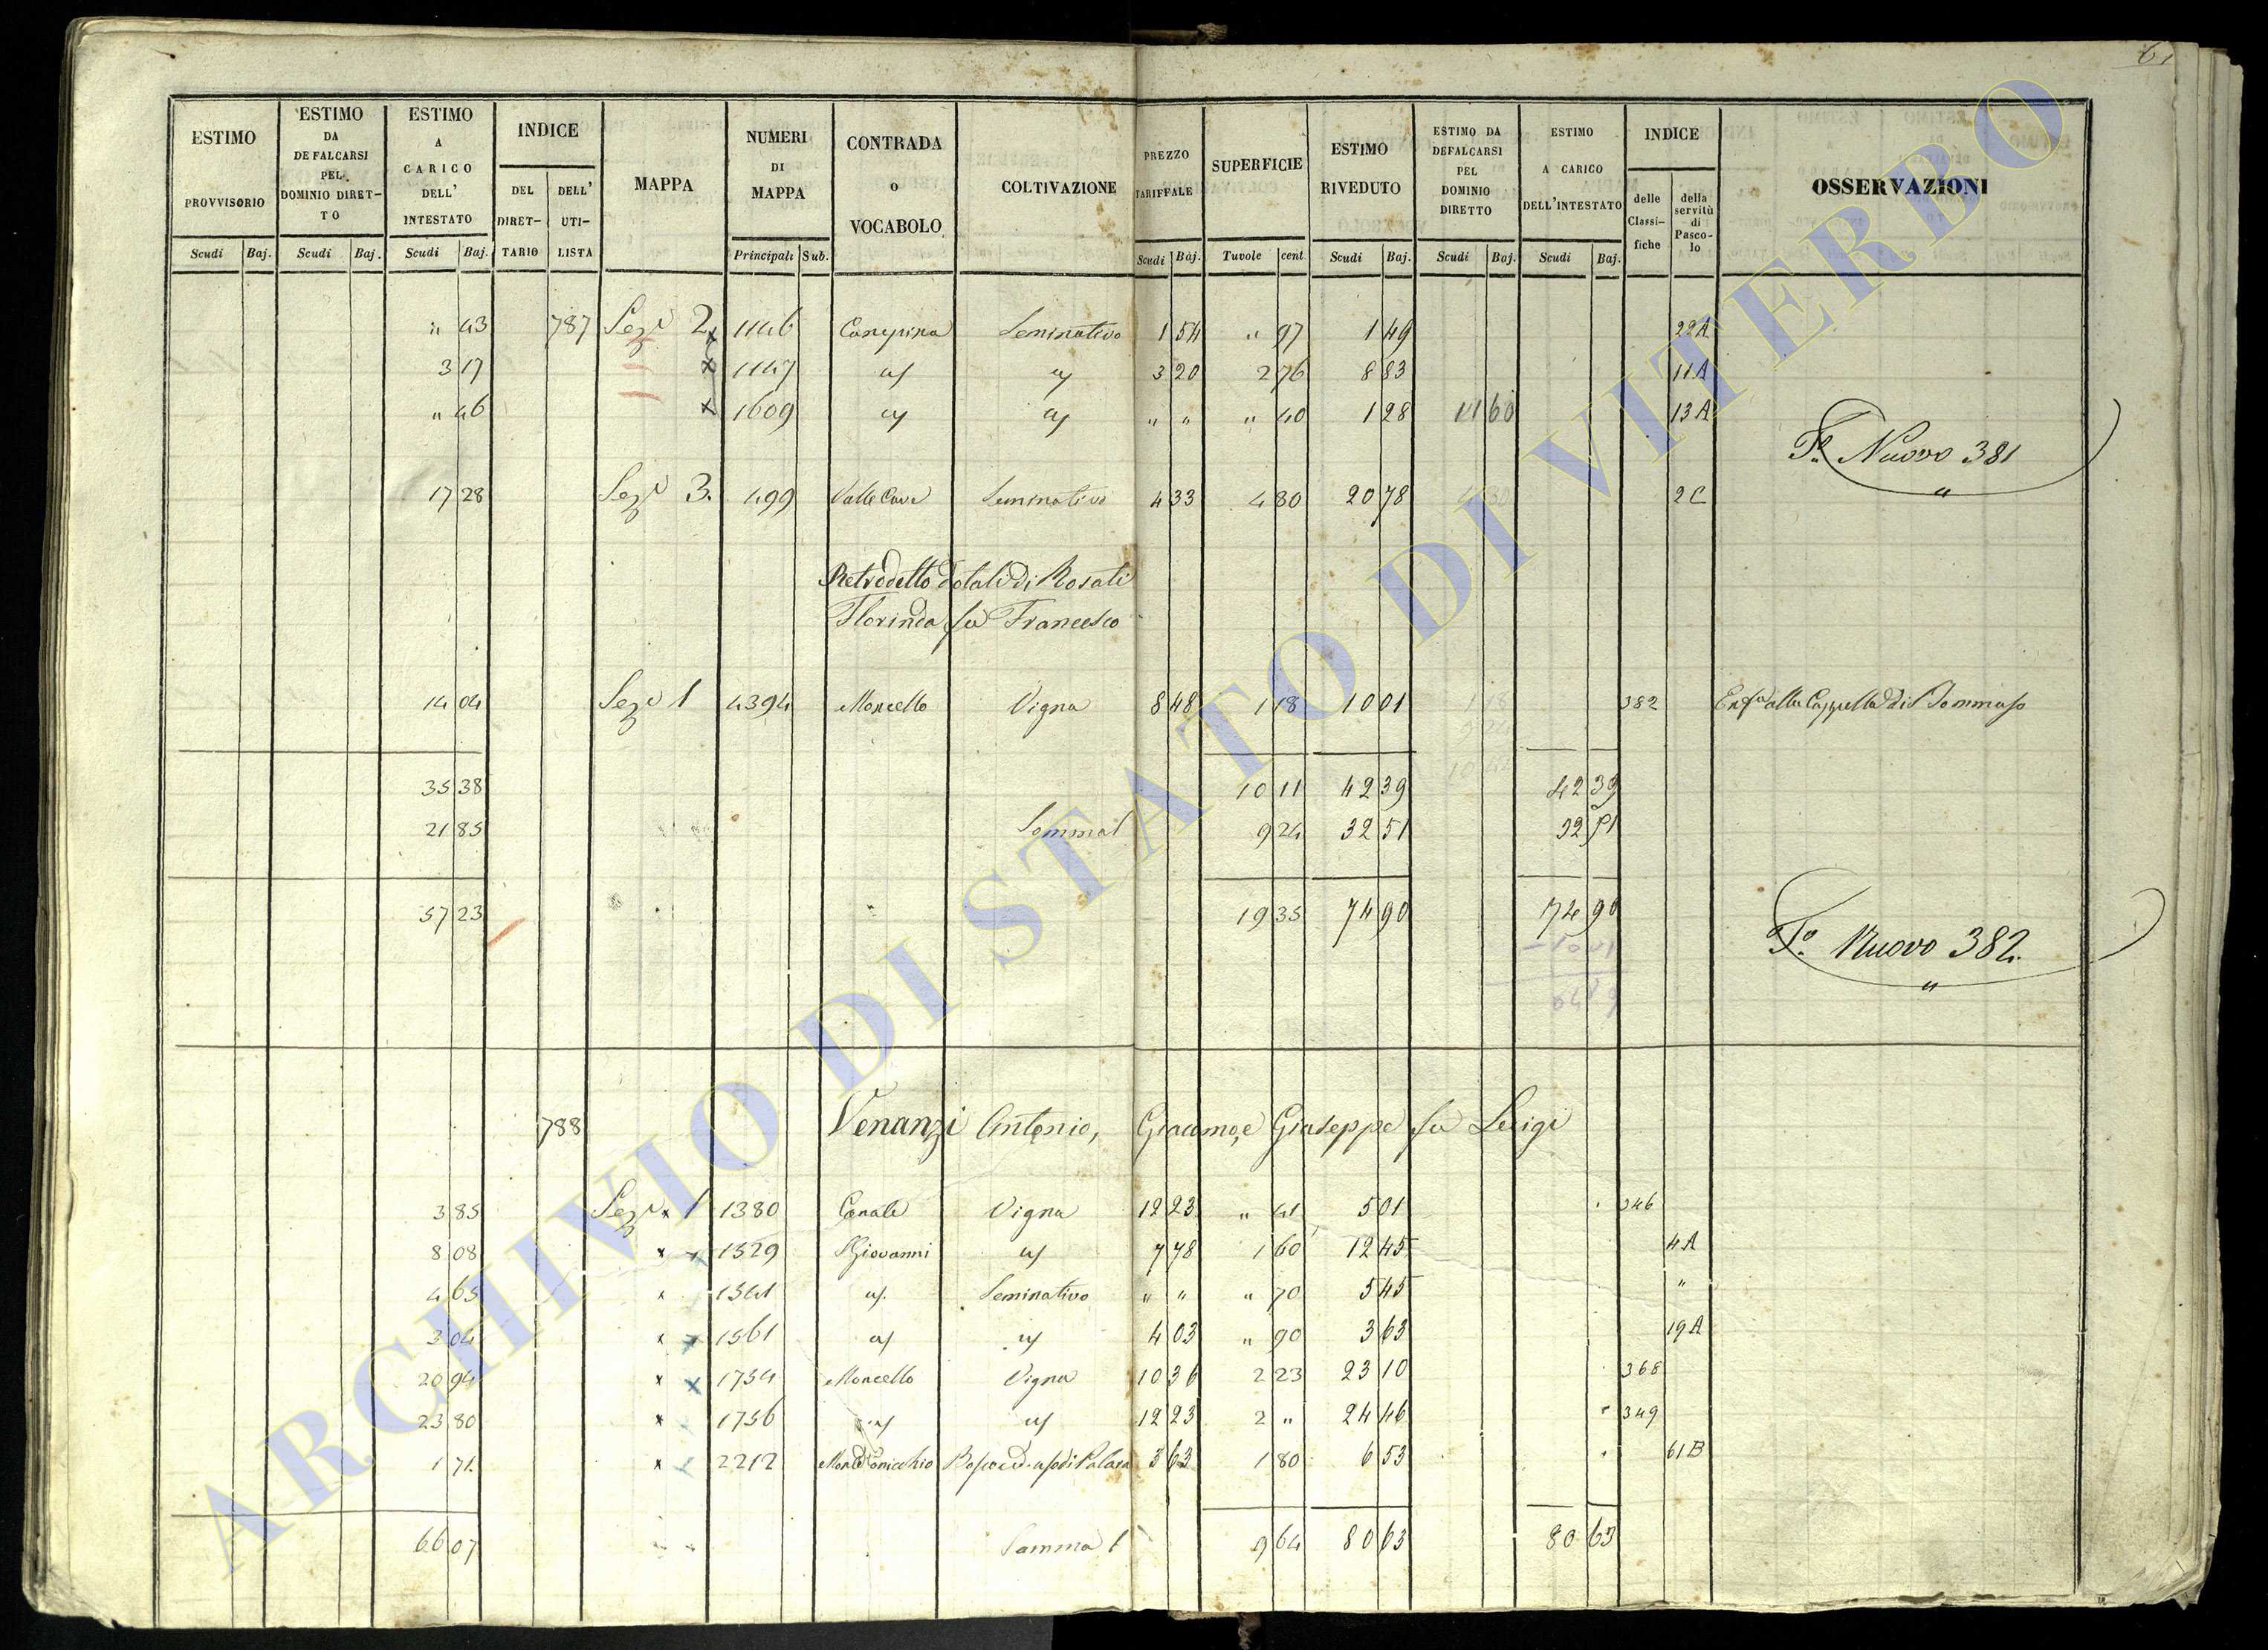 61
ESTIMO PROVVISORIO Scudi Baj. | ESTIMO DA DEFALCARSI PEL DOMINIO DIRET- TO Scudi Baj. | ESTIMO A CARICO DELL' INTESTATO Scudi Baj. | INDICE DEL DIRET- TARIO | DELL' UTI- LISTA | MAPPA | NUMERI DI MAPPA Principali Sub. | CONTRADA O VOCABOLO | COLTIVAZIONE | PREZZO TARIFFALE Scudi Baj. | SUPERFICIE Tavole cent | ESTIMO RIVEDUTO Scudi Baj. | ESTIMO DA DEFALCARSI PEL DOMINIO DIRETTO Scudi Baj. | ESTIMO A CARICO DELL'INTESTATO Scudi Baj. | INDICE delle Classi- fiche | della servitù di Pasco- lo | OSSERVAZIONI
" 43 787 Sez.e 2 x 1146 Canepina Seminativo 1 54 " 97 1 49 22A
3 17 x 1147 3 20 2 76 8 83 11A
" 46 x 1609 " " " 40 1 28 60 13A
F.o Nuovo 381
"
17 28 Sez.e 3. 499 Valle Cave Seminativo 4 33 4 80 20 78 2C
Pietrodetto dotali di Rosati
Florinda fu Francesco
14 04 Sez.e 1 4394 Moncello Vigna 8 48 1 18 10 01 382 Enf.a alla Cappella di S Tommaso
35 38 10 11 42 39 42 39
21 85 Somma 1 9 24 32 51 32 51
57 23 19 35 74 90 74 90
F.o Nuovo 382.
"
788 Venanzi Antonio, Giacomo, e Giuseppe fu Luigi
3 85 Sez.e x 1 1380 Canale Vigna 12 23 " 41 5 01 346
8 08 x x 1529 S Giovanni 7 78 1 60 12 45 4A
4 65 x 1541 Seminativo " " " 70 5 45 "
3 04 x x 1561 4 03 " 90 3 63 19A
20 94 x x 1754 Moncello Vigna 10 36 2 23 23 10 368
23 80 x 1756 12 23 2 " 24 46 349
1 71 x x 2212 3 63 1 80 6 53 61B
66 07 Somma 1 9 64 80 63 80 63
ARCHIVIO DI STATO DI VITERBO